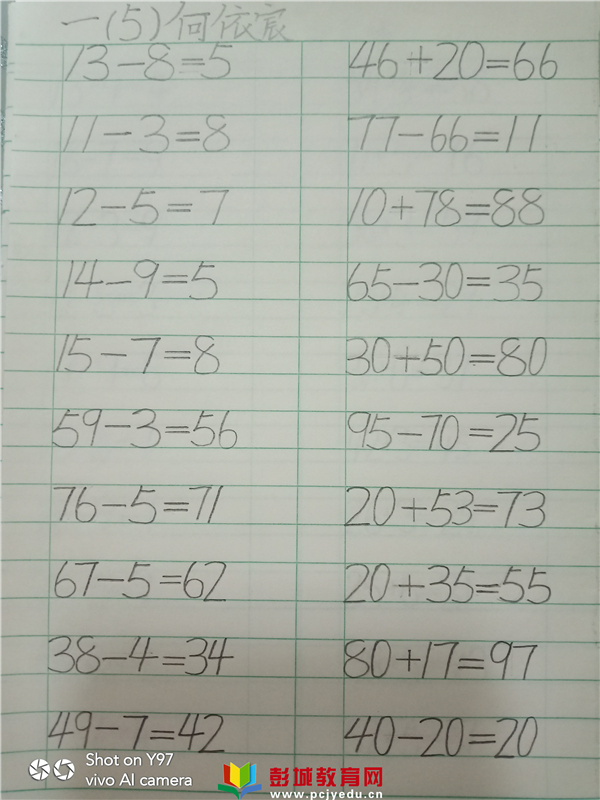 一(5)何依宸
13-8=5 46+20=66
11-3=8 77-66=11
12-5=7 10+78=88
14-9=5 65-30=35
15-7=8 30+50=80
59-3=56 95-70=25
76-5=71 20+53=73
67-5=62 20+35=55
38-4=34 80+17=97
49-7=42 40-20=20
Shot on Y97
vivo AI camera
彭城教育网
www.pcjyedu.cn